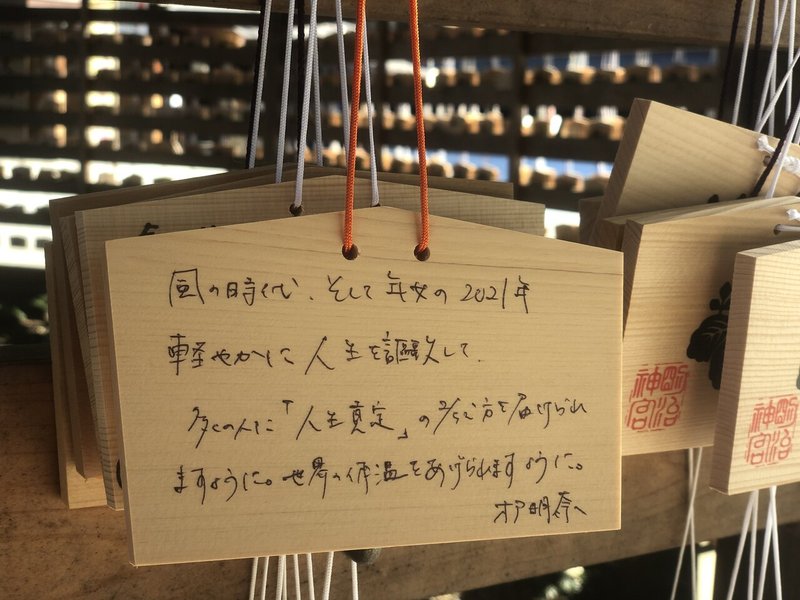 風の時代、そして年女の2021年
軽やかに人生を謳歌して、
多くの人に「人生定」の方を届けられ
ますように。世界の体温をあげられますように。
明奈
明治神宮
明治神宮